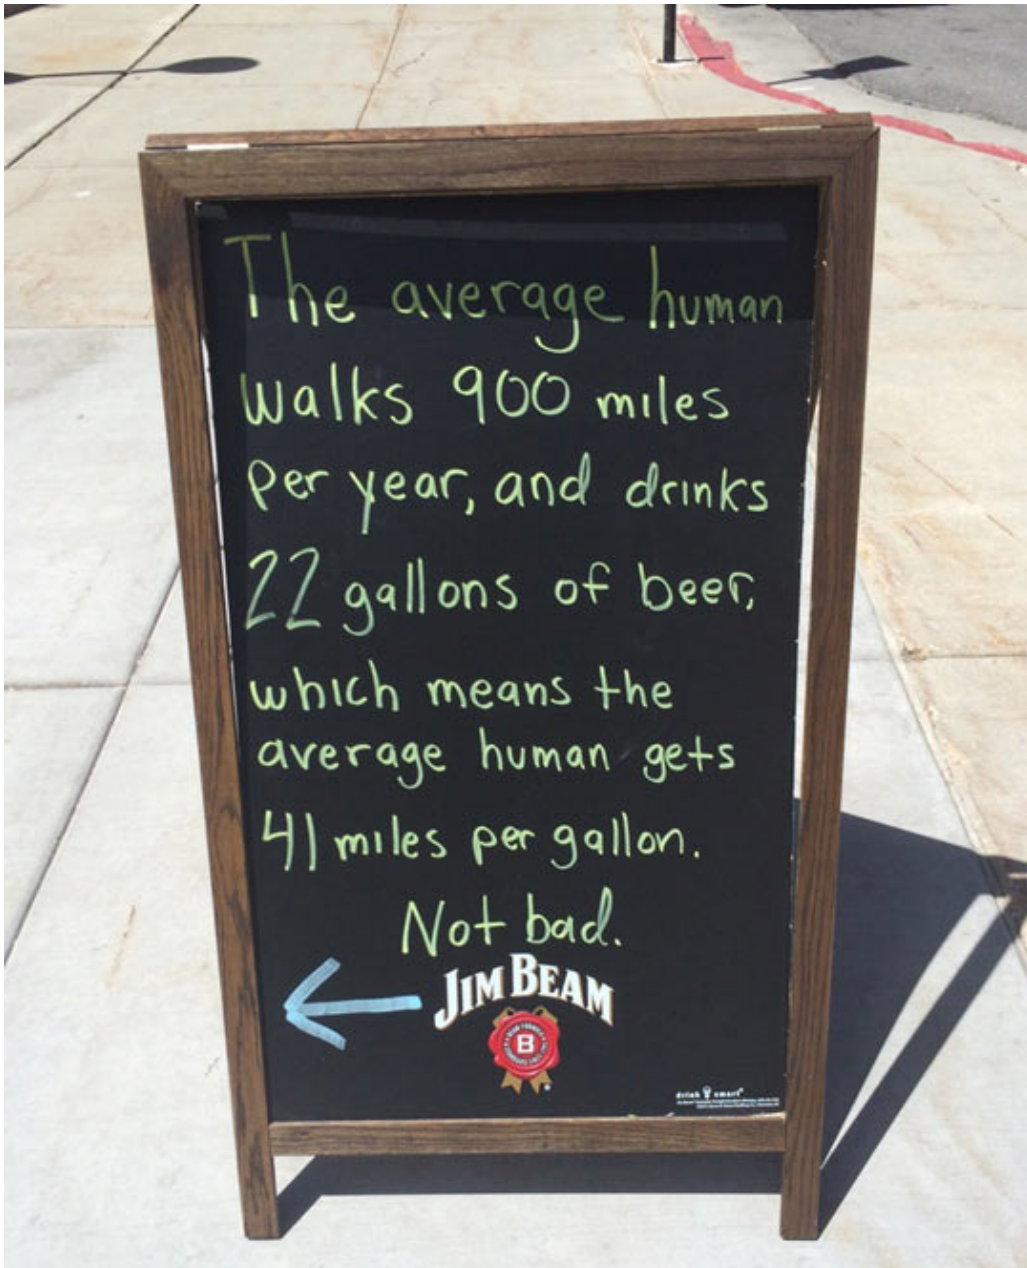 The average human
walks 900 miles
per year, and drinks
22 gallons of beer,
which means the
average human gets
41 miles per gallon.
Not bad.
JIM BEAM
B
drink smart®